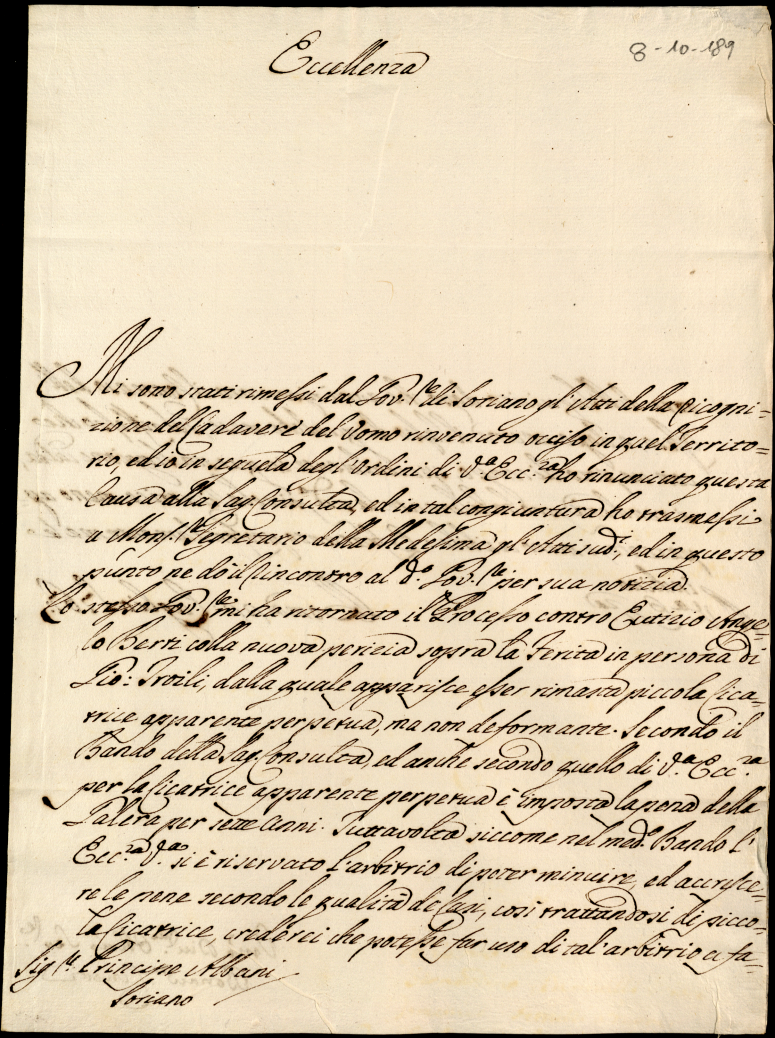 8-10-189
Eccellenza
Mi sono stati rimessi dal Gov.re di Soriano gl'Atti della Ricogni=
zione del Cadavere del Uomo rinvenuto ucciso in quel Territo=
rio, ed io in sequela degl'Ordini di V.a Ecc.za ho rinunciato questa
Causa alla Sag. Consulta, ed in tal congiuntura ho trasmessi
a Mons.r Segretario della Medesima gl'Atti sud.i, ed in questo
punto ne dò il rincontro al d.o Gov.re per sua notizia.
Lo stesso Gov.re mi ha ritornato il Processo contro Eutizio Ange=
lo Berti colla nuova perizia sopra la Ferita in persona di
Gio: Troili, dalla quale apparisce esser rimasta piccola Cica=
trice apparente perpetua, ma non deformante. Secondo il
Bando della Sag. Consulta, ed anche secondo quello di V.a Ecc.za
per la Cicatrice apparente perpetua è imposta la pena della
Galera per sette Anni. Tuttavolta siccome nel med.o Bando l'
Ecc.za V.a si è riservato l'arbitrio di poter minuire, ed accresce=
re le pene secondo le qualità de Casi, così trattandosi di picco=
la Cicatrice crederei che potesse far uso di tal'arbitrio a fa=
Sig.re Principe Albani
Soriano